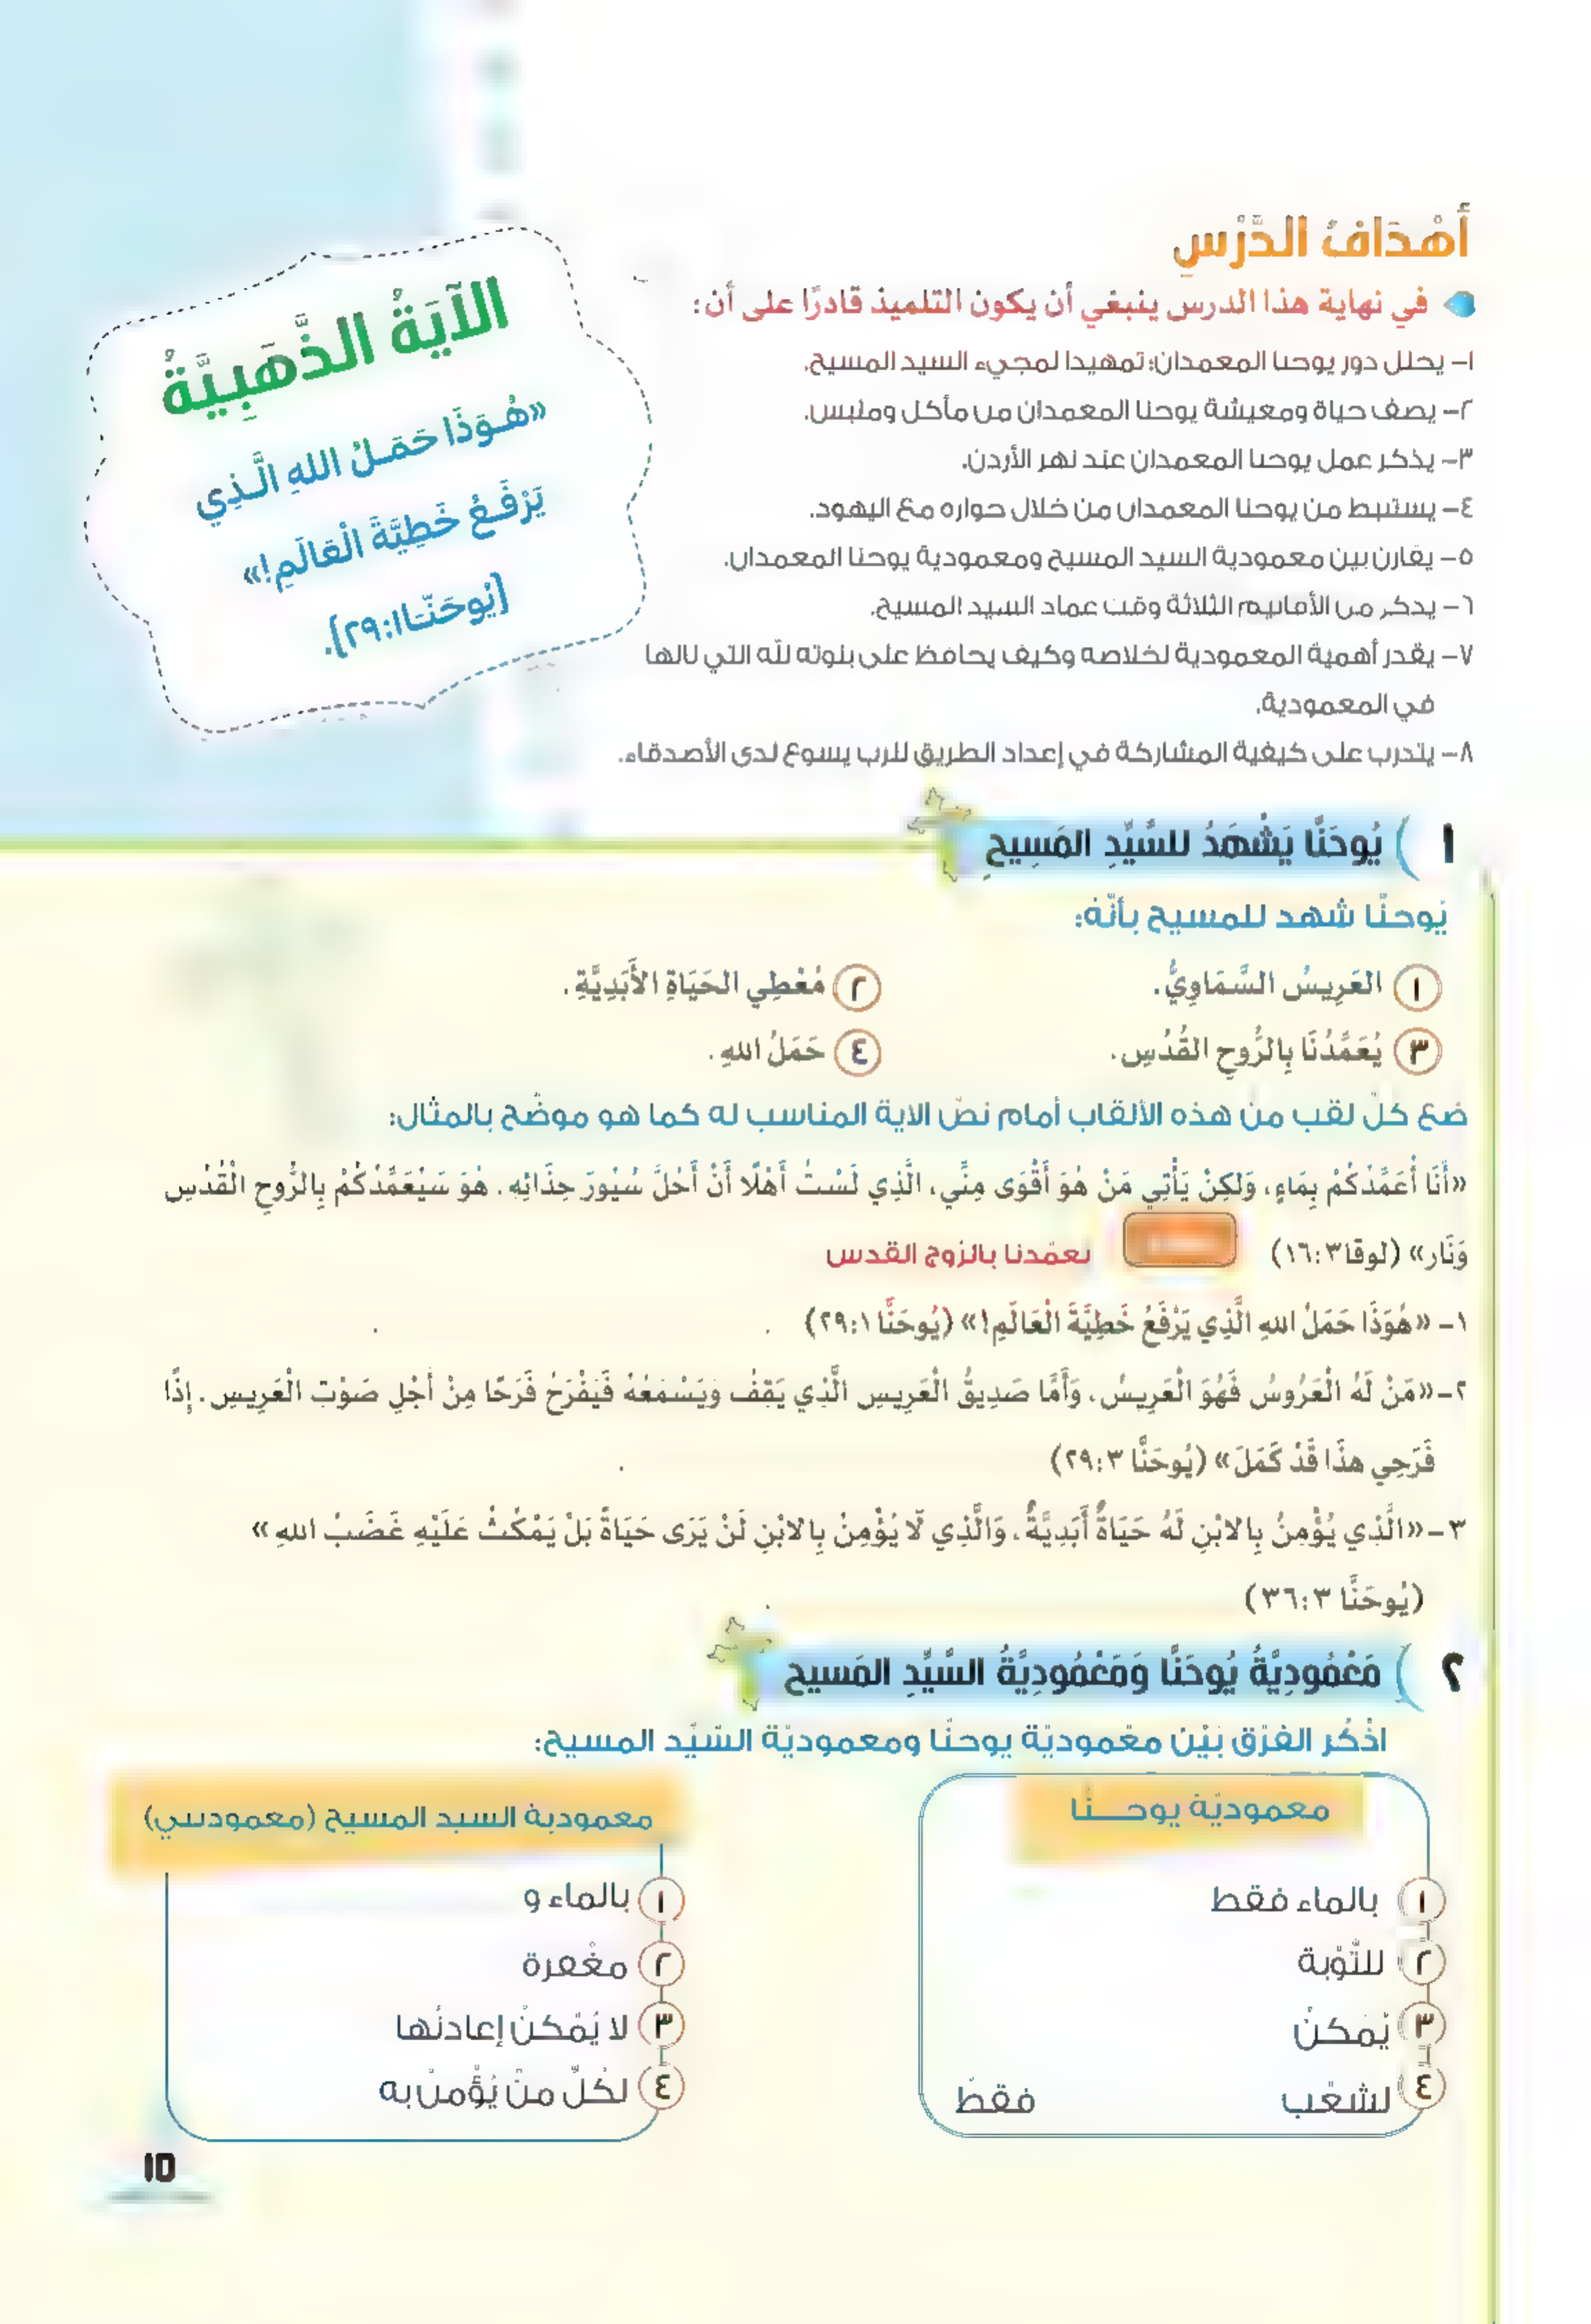 أَهْدَافُ الدَّرْسِ
في نهاية هذا الدرس ينبغي أن يكون التلميذ قادرًا على أن:
١- يحلل دور يوحنا المعمدان؛ تمهيدا لمجيء السيد المسيح.
٢- يصف حياة ومعيشة يوحنا المعمدان من مأكل وملبس.
٣- يذكر عمل يوحنا المعمدان عند نهر الأردن.
٤- يستنبط من يوحنا المعمدان من خلال حواره مع اليهود.
٥- يقارن بين معمودية السيد المسيح ومعمودية يوحنا المعمدان.
٦- يذكر من الأقانيم الثلاثة وقت عماد السيد المسيح.
٧- يقدر أهمية المعمودية لخلاصه وكيف يحافظ على بنوته لله التي نالها
في المعمودية.
٨- يتدرب على كيفية المشاركة في إعداد الطريق للرب يسوع لدى الأصدقاء.
الآيَةُ الذَّهَبِيَّةُ
«هُوَذَا حَمَلُ اللهِ الَّذِي
يَرْفَعُ خَطِيَّةَ الْعَالَمِ!»
(يُوحَنَّا١:٢٩).
١ ) يُوحَنَّا يَشْهَدُ للسَّيِّدِ المَسِيحِ
يُوحنَّا شهد للمسيح بأنَّهُ:
١ العَرِيسُ السَّمَاوِيُّ.
٢ مُعْطِي الحَيَاةِ الأَبَدِيَّةِ.
٣ يُعَمِّدُنَا بِالرُّوحِ القُدُسِ.
٤ حَمَلُ اللهِ.
ضع كلّ لقب من هذه الألقاب أمام نصّ الاية المناسب له كما هو موضَّح بالمثال:
«أَنَا أُعَمِّدُكُمْ بِمَاءٍ، وَلكِنْ يَأْتِي مَنْ هُوَ أَقْوَى مِنِّي، الَّذِي لَسْتُ أَهْلًا أَنْ أَحُلَّ سُيُورَ حِذَائِهِ. هُوَ سَيُعَمِّدُكُمْ بِالرُّوحِ الْقُدُسِ
وَنَارٍ» (لوقا٣:١٦) يعمّدنا بالروح القدس
١- «هُوَذَا حَمَلُ اللهِ الَّذِي يَرْفَعُ خَطِيَّةَ الْعَالَمِ!» (يُوحَنَّا ١:٢٩)
٢-«مَنْ لَهُ الْعَرُوسُ فَهُوَ الْعَرِيسُ، وَأَمَّا صَدِيقُ الْعَرِيسِ الَّذِي يَقِفُ وَيَسْمَعُهُ فَيَفْرَحُ فَرَحًا مِنْ أَجْلِ صَوْتِ الْعَرِيسِ. إِذًا
فَرَحِي هذَا قَدْ كَمَلَ» (يُوحَنَّا ٣:٢٩)
٣-«الَّذِي يُؤْمِنُ بِالابْنِ لَهُ حَيَاةٌ أَبَدِيَّةٌ، وَالَّذِي لَا يُؤْمِنُ بِالابْنِ لَنْ يَرَى حَيَاةً بَلْ يَمْكُثُ عَلَيْهِ غَضَبُ اللهِ»
(يُوحَنَّا ٣:٣٦)
٢ ) مَعْمُودِيَّةُ يُوحَنَّا وَمَعْمُودِيَّةُ السَّيِّدِ المَسيح
اذْكُر الفرْق بَيْن معْموديّة يوحنّا ومعموديّة السّيِّد المسيح:
معموديّة يوحـــنّا
١ بالماء فقط
٢ للتّوْبة
٣ يُمْكنُ
٤ لشعْب فقطْ
معمودية السيد المسيح (معموديتي)
١ بالماء و
٢ مغْفرة
٣ لا يُمْكنُ إعادتُها
٤ لكُلّ منْ يُؤْمنُ به
١٥